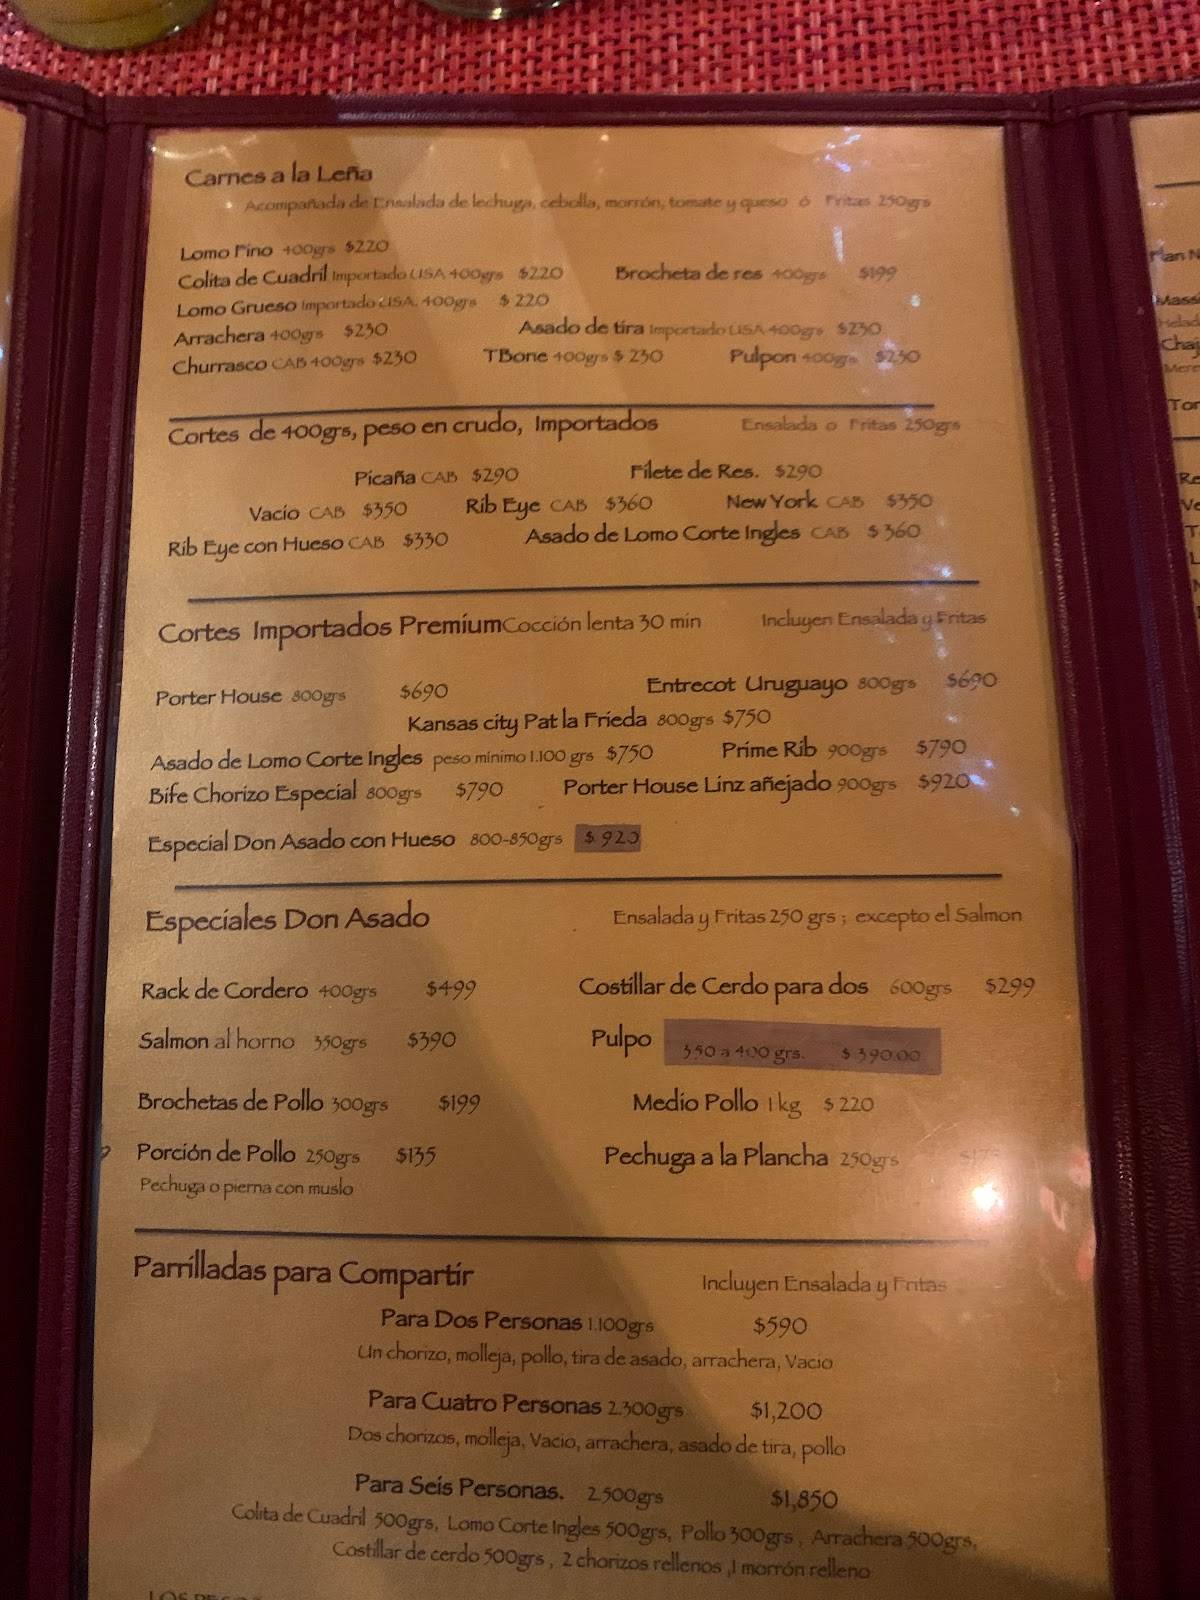 Carnes a la Leña
Acompañada de Ensalada de lechuga, cebolla, morrón, tomate y queso ó Fritas 250grs
Lomo Fino 400grs $220
Colita de Cuadril Importado USA 400grs $220 Brocheta de res 400grs $199
Lomo Grueso Importado USA. 400grs $ 220
Arrachera 400grs $230 Asado de tira Importado USA 400grs $230
Churrasco CAB 400grs $230 TBone 400grs $ 230 Pulpon 400grs $230
Cortes de 400grs, peso en crudo, Importados Ensalada o Fritas 250grs
Picaña CAB $290 Filete de Res. $290
Vacio CAB $350 Rib Eye CAB $360 New York CAB $350
Rib Eye con Hueso CAB $330 Asado de Lomo Corte Ingles CAB $ 360
Cortes Importados Premium Cocción lenta 30 min Incluyen Ensalada y Fritas
Porter House 800grs $690 Entrecot Uruguayo 800grs $690
Kansas city Pat la Frieda 800grs $750
Asado de Lomo Corte Ingles peso mínimo 1.100 grs $750 Prime Rib 900grs $790
Bife Chorizo Especial 800grs $790 Porter House Linz añejado 900grs $920
Especial Don Asado con Hueso 800-850grs $ 920
Especiales Don Asado Ensalada y Fritas 250 grs ; excepto el Salmon
Rack de Cordero 400grs $499 Costillar de Cerdo para dos 600grs $299
Salmon al horno 350grs $390 Pulpo 350 a 400 grs. $ 390.00
Brochetas de Pollo 300grs $199 Medio Pollo 1 kg $ 220
Porción de Pollo 250grs $135 Pechuga a la Plancha 250grs
Pechuga o pierna con muslo
Parrilladas para Compartir Incluyen Ensalada y Fritas
Para Dos Personas 1.100grs $590
Un chorizo, molleja, pollo, tira de asado, arrachera, Vacio
Para Cuatro Personas 2.300grs $1,200
Dos chorizos, molleja, Vacio, arrachera, asado de tira, pollo
Para Seis Personas. 2.500grs $1,850
Colita de Cuadril 500grs, Lomo Corte Ingles 500grs, Pollo 300grs , Arrachera 500grs,
Costillar de cerdo 500grs , 2 chorizos rellenos ,1 morrón relleno